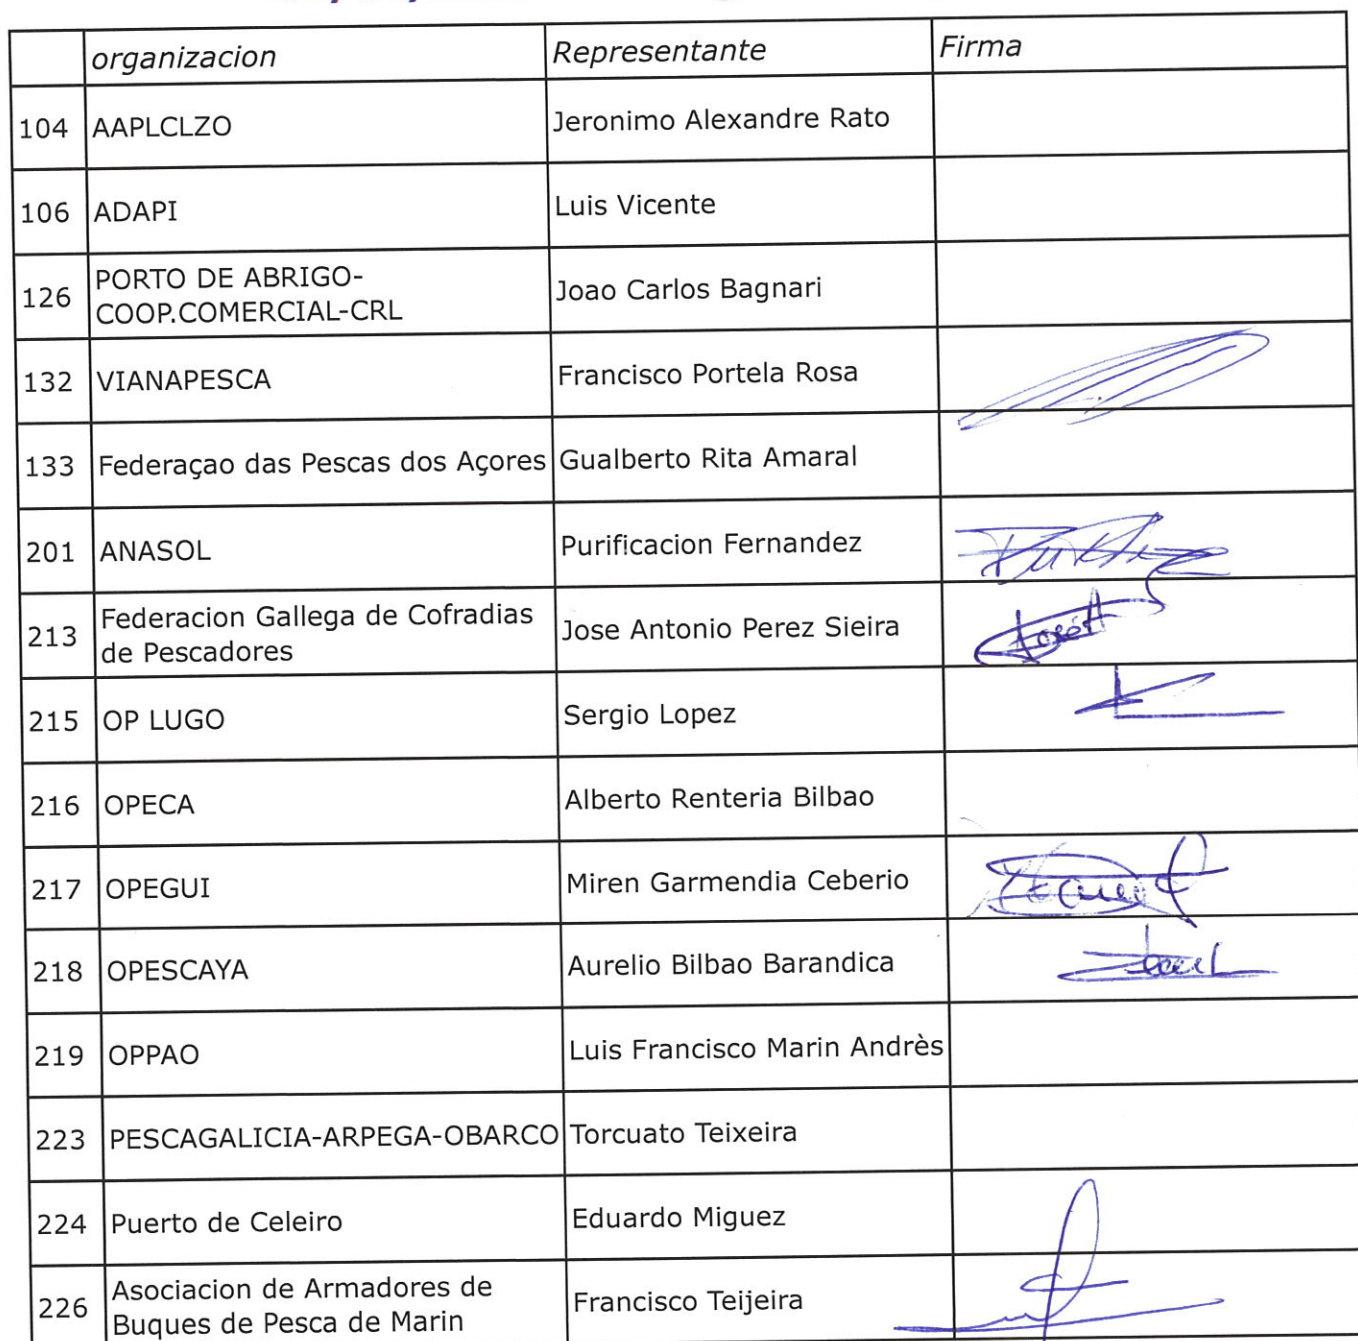 organizacion Representante Firma
104 AAPLCLZO Jeronimo Alexandre Rato
106 ADAPI Luis Vicente
126 PORTO DE ABRIGO-
COOP.COMERCIAL-CRL Joao Carlos Bagnari
132 VIANAPESCA Francisco Portela Rosa
133 Federaçao das Pescas dos Açores Gualberto Rita Amaral
201 ANASOL Purificacion Fernandez
213 Federacion Gallega de Cofradias
de Pescadores Jose Antonio Perez Sieira
215 OP LUGO Sergio Lopez
216 OPECA Alberto Renteria Bilbao
217 OPEGUI Miren Garmendia Ceberio
218 OPESCAYA Aurelio Bilbao Barandica
219 OPPAO Luis Francisco Marin Andrès
223 PESCAGALICIA-ARPEGA-OBARCO Torcuato Teixeira
224 Puerto de Celeiro Eduardo Miguez
226 Asociacion de Armadores de
Buques de Pesca de Marin Francisco Teijeira